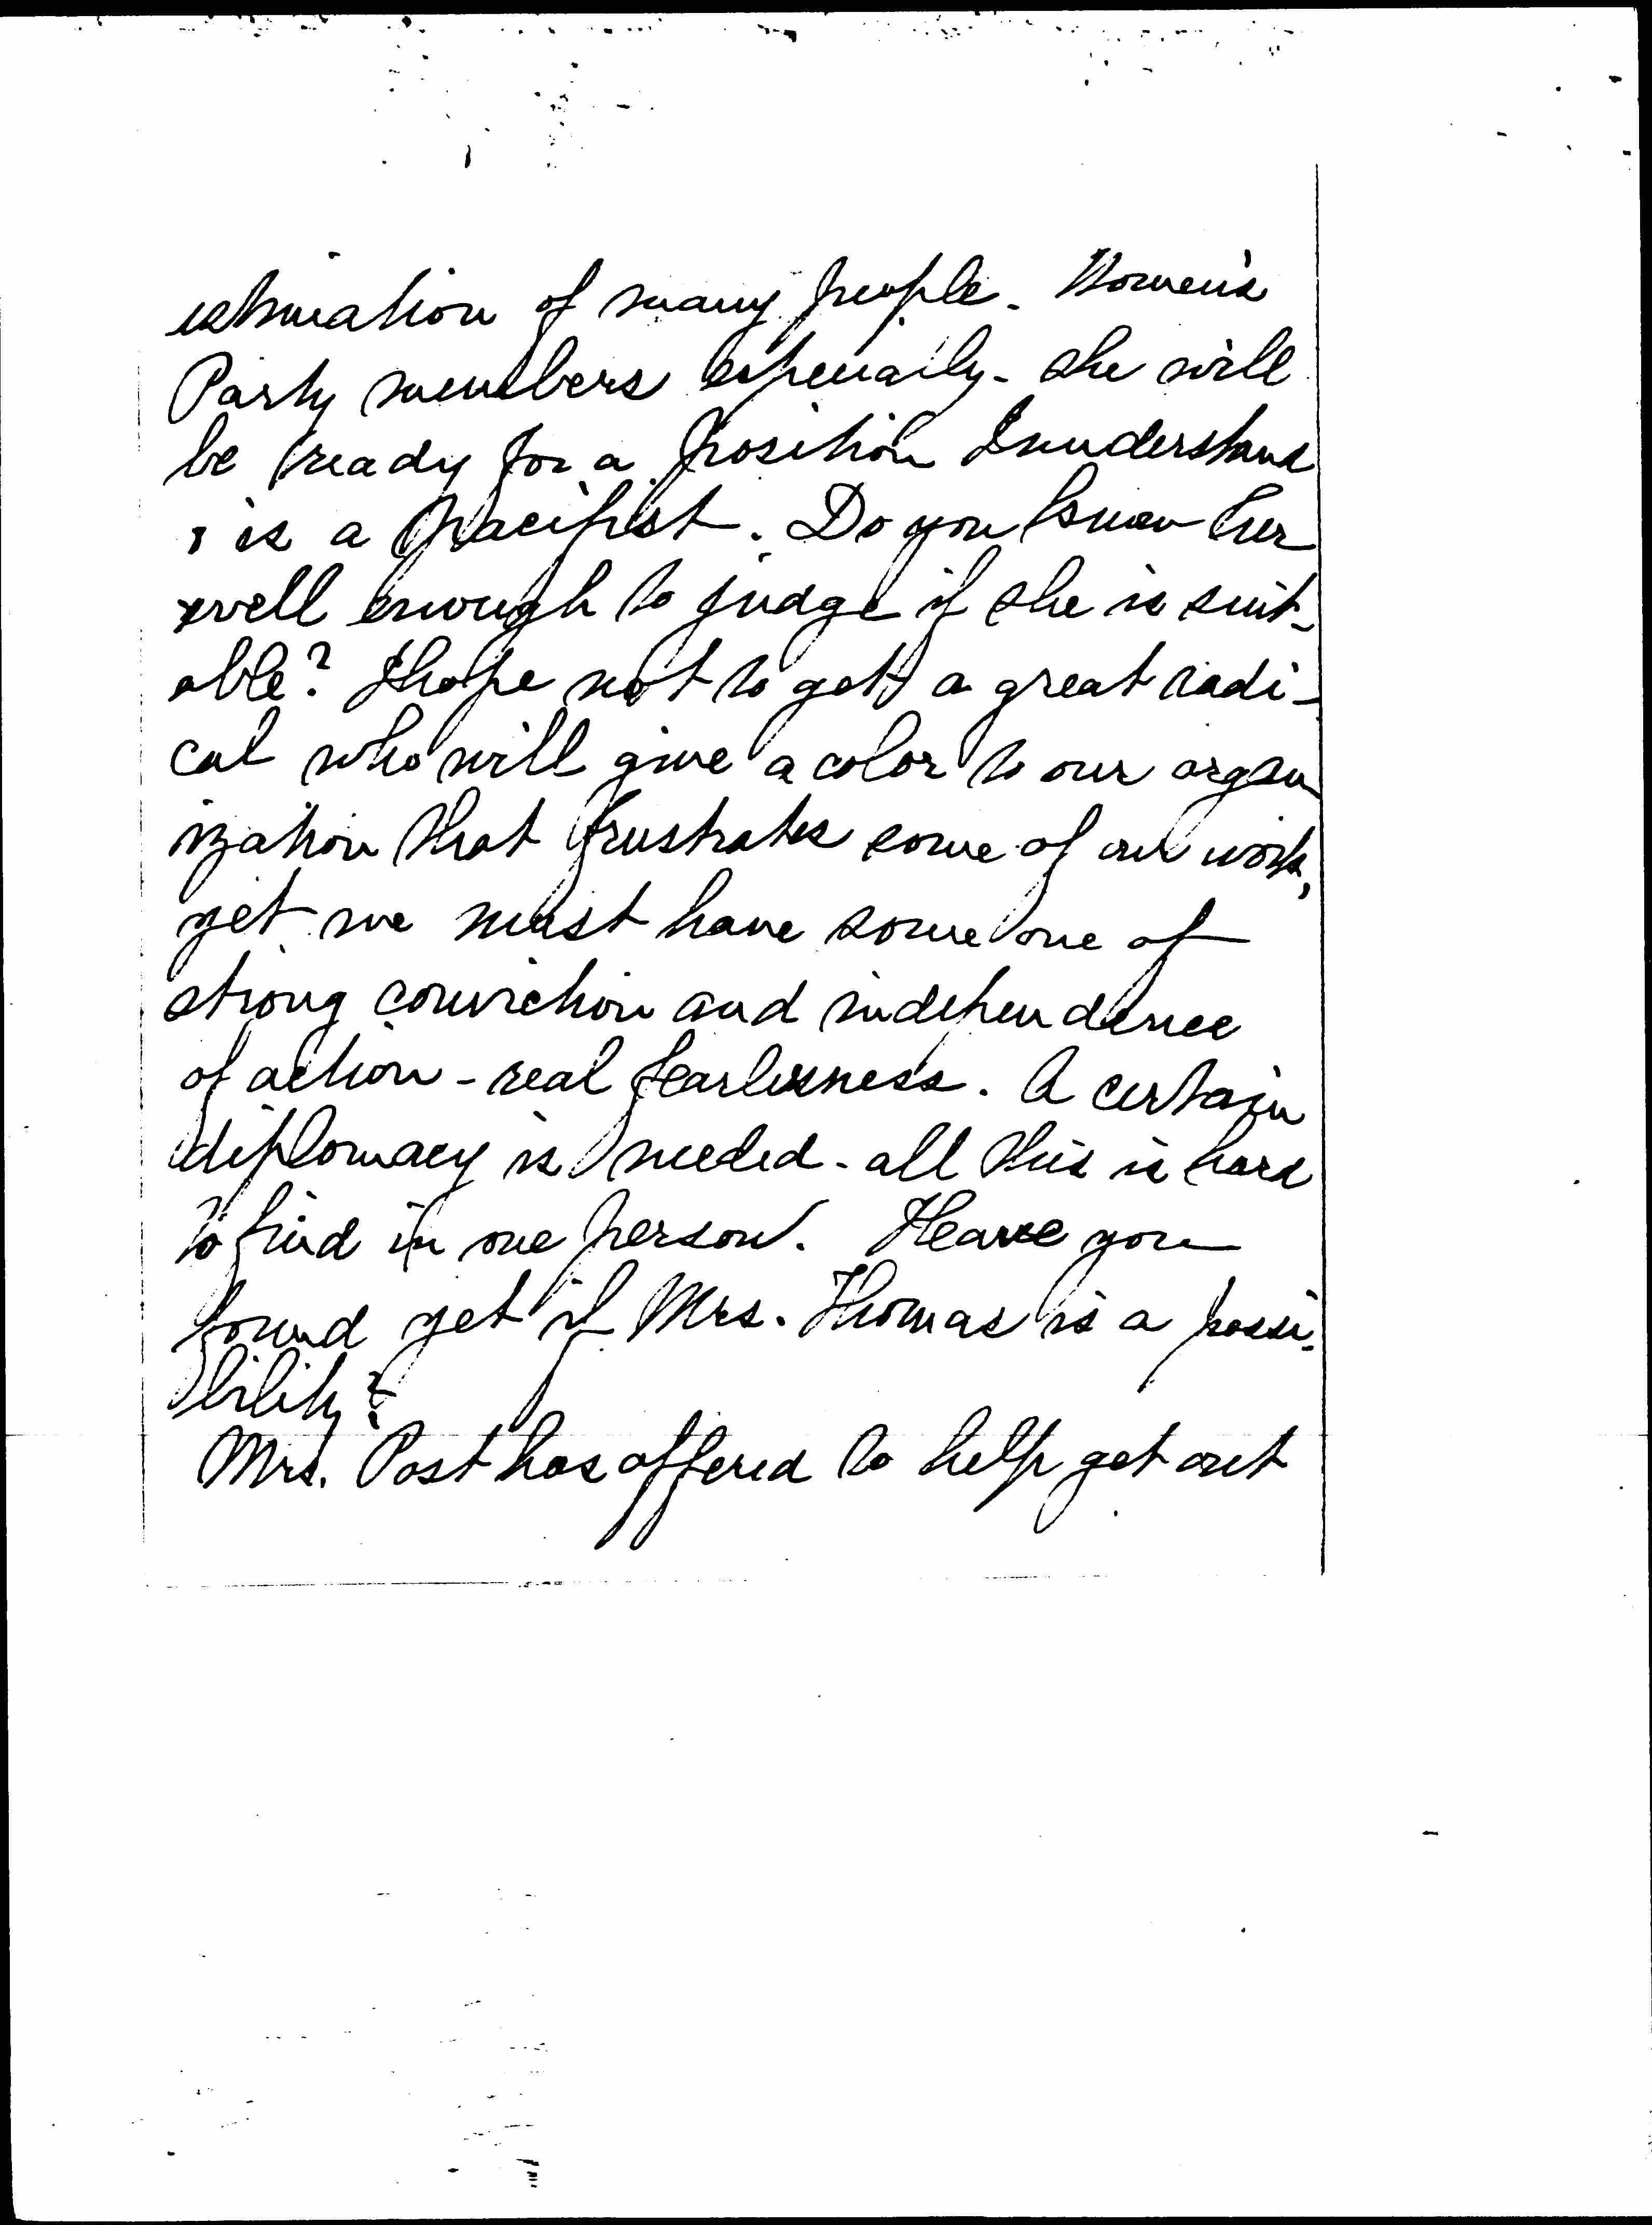 estimation of many people. Women's
Party members especially - she will
be ready for a position I understand
& is a pacifist. Do you know her
well enough to judge if she is suit-
able? I hope not to get a great radi-
cal who will give a color to our organ
ization that frustrates some of our work,
yet we must have some one of
strong conviction and independence
of action - real fearlessness. A certain
diplomacy is needed - all this is hard
to find in one person. Have you
found yet if Mrs. Thomas is a possi-
bility?
Mrs. Post has offered to help get out